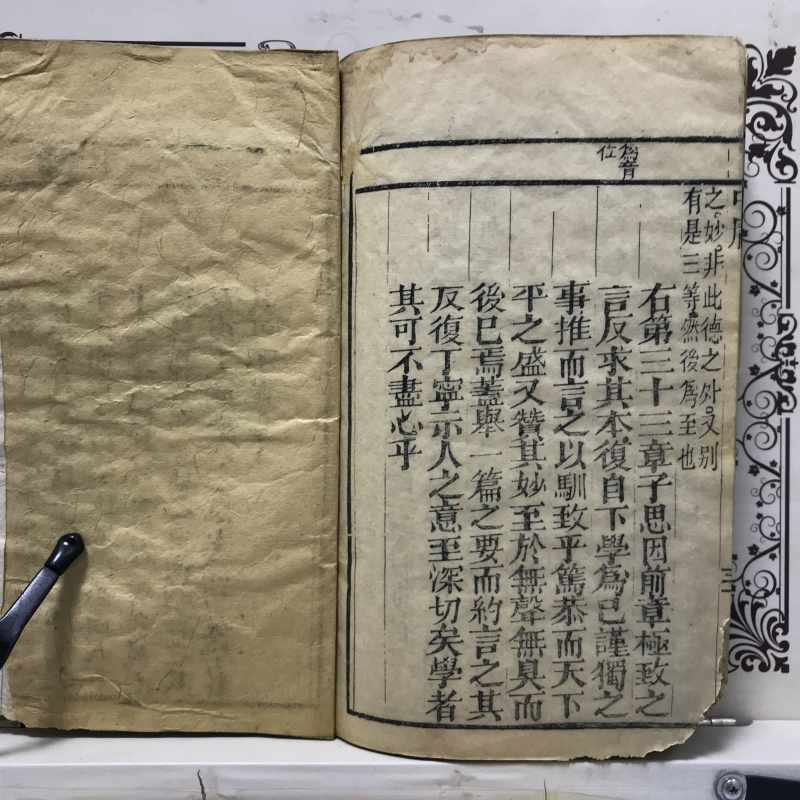 之妙非此德之外又別
有是三等然後爲至也
右第三十三章子思因前章極致之
言反求其本復自下學爲己謹獨之
事推而言之以馴致乎篤恭而天下
平之盛又贊其妙至於無聲無臭而
後已焉蓋舉一篇之要而約言之其
反復丁寧示人之意至深切矣學者
其可不盡心乎
爲音
位